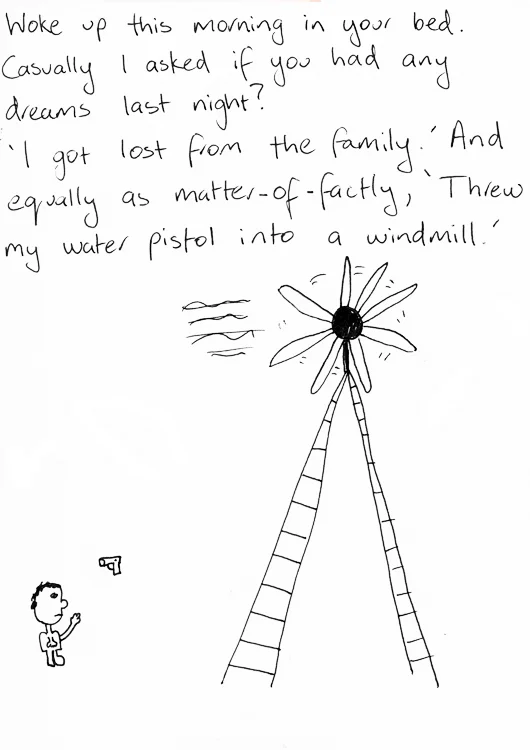 Woke up this morning in your bed.
Casually I asked if you had any
dreams last night?
'I got lost from the family.' And
equally as matter-of-factly, 'Threw
my water pistol into a windmill.'